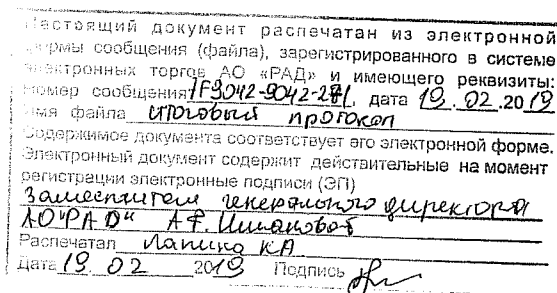 Настоящий документ распечатан из электронной
формы сообщения (файла), зарегистрированного в системе
электронных торгов АО «РАД» и имеющего реквизиты:
Номер сообщения дата 19.02.2019
Имя файла итоговый протокол
Содержимое документа соответствует его электронной форме.
Электронный документ содержит действительные на момент
регистрации электронные подписи (ЭП)
Заместителем генерального директора
АО "РАД" А.Ф.
Распечатал Лапина КА
Дата 19.02 2019 Подпись